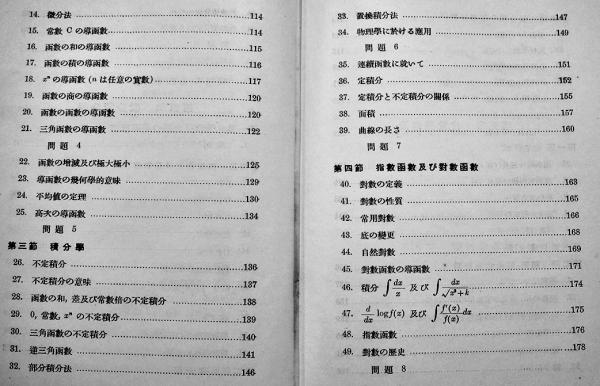 14. 微分法 114
15. 常數 C の導函數 114
16. 函數の和の導函數 115
17. 函數の積の導函數 116
18. xⁿ の導函數 (n は任意の實數) 117
19. 函數の商の導函數 120
20. 函數の函數の導函數 120
21. 三角函數の導函數 122
問題 4
22. 函數の増減及び極大極小 125
23. 導函數の幾何學的意味 129
24. 平均値の定理 130
25. 高次の導函數 134
問題 5
第三節 積分學
26. 不定積分 136
27. 不定積分の意味 137
28. 函數の和, 差及び常數倍の不定積分 138
29. 0, 常數, xⁿ の不定積分 139
30. 三角函數の不定積分 140
31. 逆三角函數 141
32. 部分積分法 146
33. 置換積分法 147
34. 物理學に於ける應用 149
問題 6
35. 連續函數に就いて 151
36. 定積分 152
37. 定積分と不定積分の關係 155
38. 面積 157
39. 曲線の長さ 160
問題 7
第四節 指數函數及び對數函數
40. 對數の定義 163
41. 對數の性質 165
42. 常用對數 166
43. 底の變更 168
44. 自然對數 169
45. 對數函數の導函數 171
46. 積分 ∫dx/x 及び ∫dx/√(x²+k) 174
47. d/dx log f(x) 及び ∫f'(x)/f(x) dx 175
48. 指數函數 176
49. 對數の歷史 178
問題 8